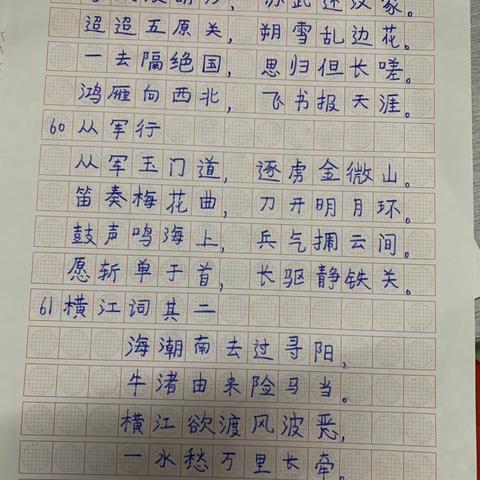 苏武还汉家。
迢迢五原关, 朔雪乱边花。
一去隔绝国, 思归但长嗟。
鸿雁向西北, 飞书报天涯。
60 从军行
从军玉门道, 逐虏金微山。
笛奏梅花曲, 刀开明月环。
鼓声鸣海上, 兵气拥云间。
愿斩单于首, 长驱静铁关。
61 横江词其二
海潮南去过寻阳,
牛渚由来险马当。
横江欲渡风波恶,
一水愁万里长牵。